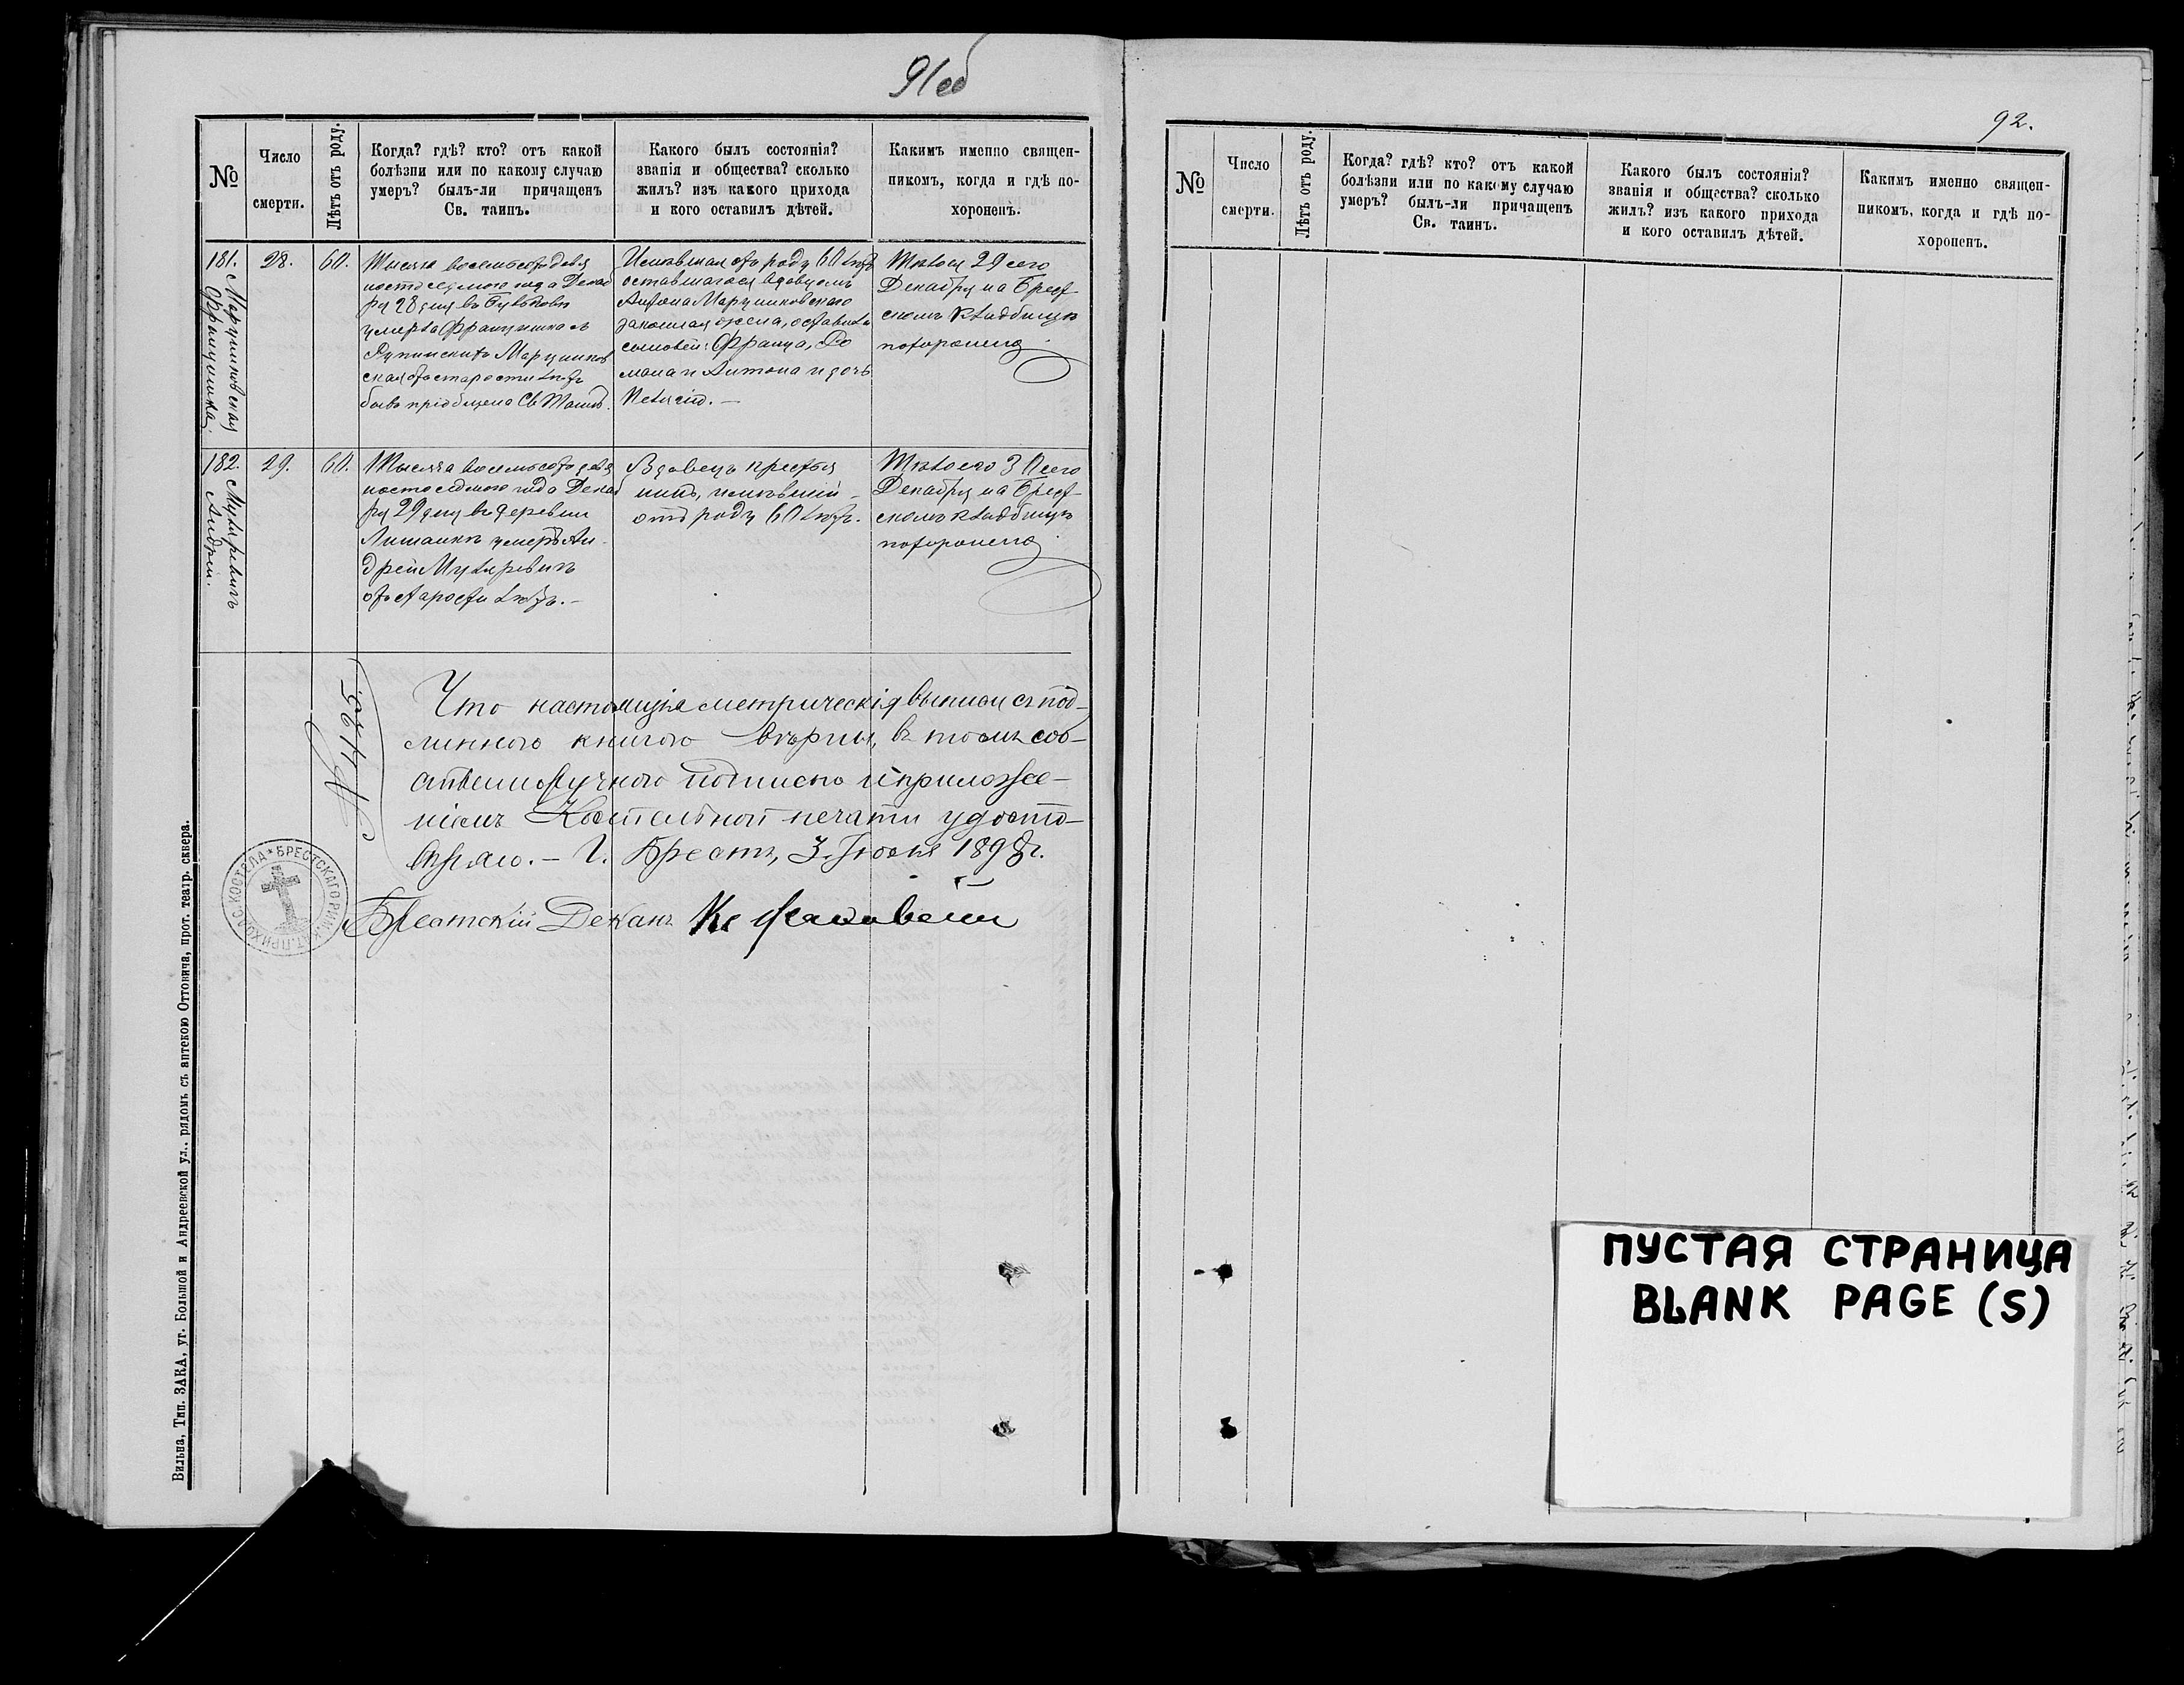 91об
№
Число
смерти.
Лѣтъ отъ роду.
Когда? гдѣ? кто? отъ какой
болѣзни или по какому случаю
умеръ? былъ-ли причащенъ
Св. таинъ.
Какого былъ состоянія?
званія и общества? сколько
жилъ? изъ какого прихода
и кого оставилъ дѣтей.
Какимъ именно священ-
никомъ, когда и гдѣ по-
хороненъ.
181.
Марцинковская
Францишка.
28.
60.
Тысяча восемьсотъ девя
носто седьмого года Декаб
ря 28 дня въ
умерла Францишка
Марцинков
ская отъ старости лѣтъ
бывъ пріобщена Св. Таинъ.
Имѣвшая отъ роду 60 лѣтъ
оставшагося вдовцомъ
Антона Марцинковскаго
законная жена, оставила
сыновей: Франца, Ро
мана и Антона и дочь
Тѣло ея 29 сего
Декабря на Брест
скомъ кладбищѣ
похоронено
182.
Андрей.
29.
60.
Тысяча восемьсотъ девя
носто седьмого года Декаб
ря 29 дня въ деревни
умеръ Ан
дрей
отъ старости лѣтъ. –
Вдовецъ крестья
нинъ, имѣвшій
отъ роду 60 лѣтъ.
Тѣло его 30 сего
Декабря на Брест
скомъ кладбищѣ
похоронено
Что настоящія метрическія выписи съ под-
линною книгою вѣрны, въ томъ соб-
ственноручною подписью и приложе-
ніемъ Костельной печати удосто-
вѣряю. – Г. Брестъ, 3 Іюня 1898 г.
Брестскій Деканъ Кс
БРЕСТСКАГО РИМ. КАТ. ПРИХОДС. КОСТЕЛА
Вильна, Тип. ЗАКА, уг. Большой и Андреевской ул., рядомъ съ аптекою Оттовича, прот. театр. сквера.
92.
№
Число
смерти.
Лѣтъ отъ роду.
Когда? гдѣ? кто? отъ какой
болѣзни или по какому случаю
умеръ? былъ-ли причащенъ
Св. таинъ.
Какого былъ состоянія?
званія и общества? сколько
жилъ? изъ какого прихода
и кого оставилъ дѣтей.
Какимъ именно священ-
никомъ, когда и гдѣ по-
хороненъ.
ПУСТАЯ СТРАНИЦА
BLANK PAGE (S)